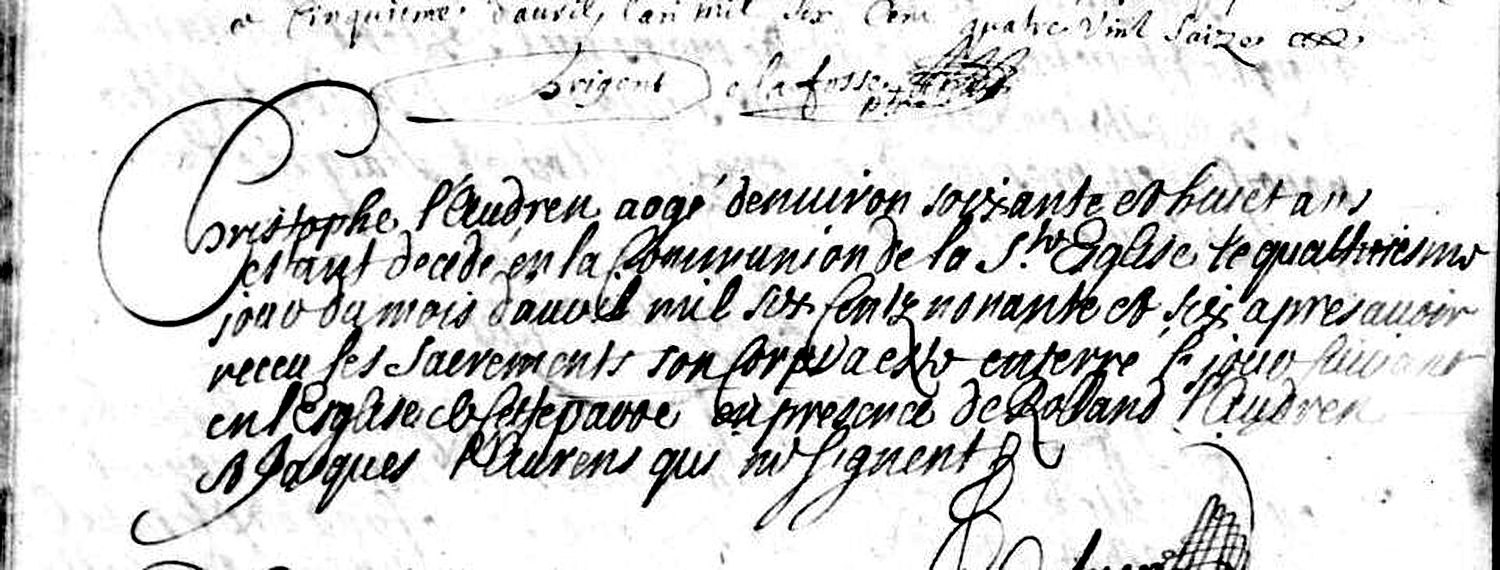 ce cinquiesme d'auril, l'an mil six cent quatre vint saize
Brigent de la fosse ptre
Christophe l'Audren aagé denuiron soixante et huict ans
estant decedé en la Communion de la Ste Eglise le quattriesme
jour du mois dauril mil six Centz nonante et six apres auoir
receu les Sacrements son Corps a este enterré le jour suiuant
en l'Eglise de Cette parroe en presence de Rolland l'Audren
et Jacques l'Aurens qui ne signent